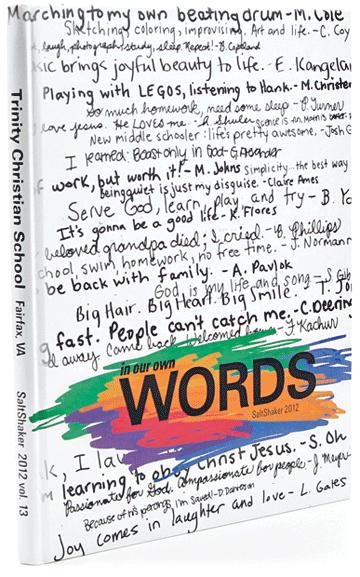 Marching to my own beating drum - M. Cole
Sketching, coloring, improvising. Art and life. - C. Coy
laugh, photograph, study, sleep. Repeat! - B. Copeland
brings joyful beauty to life. - E. Kangelari
Playing with LEGOS, listening to Hank. - M. Christen
So much homework, need some sleep - P. Turner
love Jesus. He Loves me. - R. Shuler
New middle schooler: life's pretty awesome, - Josh G
I learned: Boast only in God - G. Alexander
work, but worth it! - M. Johns
Simplicity... the best way
being quiet is just my disguise. - Claire Ames
Serve God, learn, play, and try - B. Yo
It's gonna be a good life - K. Flores
beloved grandpa died; I cried. - B. Phillips
chool, swim, homework, no free time. - J. Norman
be back with family. - A. Pavlok
God is my life and song - S
Big Hair. Big Heart. Big Smile. - T. Jo
g fast. People can't catch me. - C. Deerin
away Came back Welcomed home - J Kachur
in our own
WORDS
SaltShaker 2012
k, I
learning to obey Christ Jesus. - S. Oh
Passionate for God. Compassionate for people - J. Meyer
Because of his piercings, I'm Saved! - D.
Joy comes in laughter and love - L. Gates
Trinity Christian School Fairfax, VA SaltShaker 2012 vol. 13